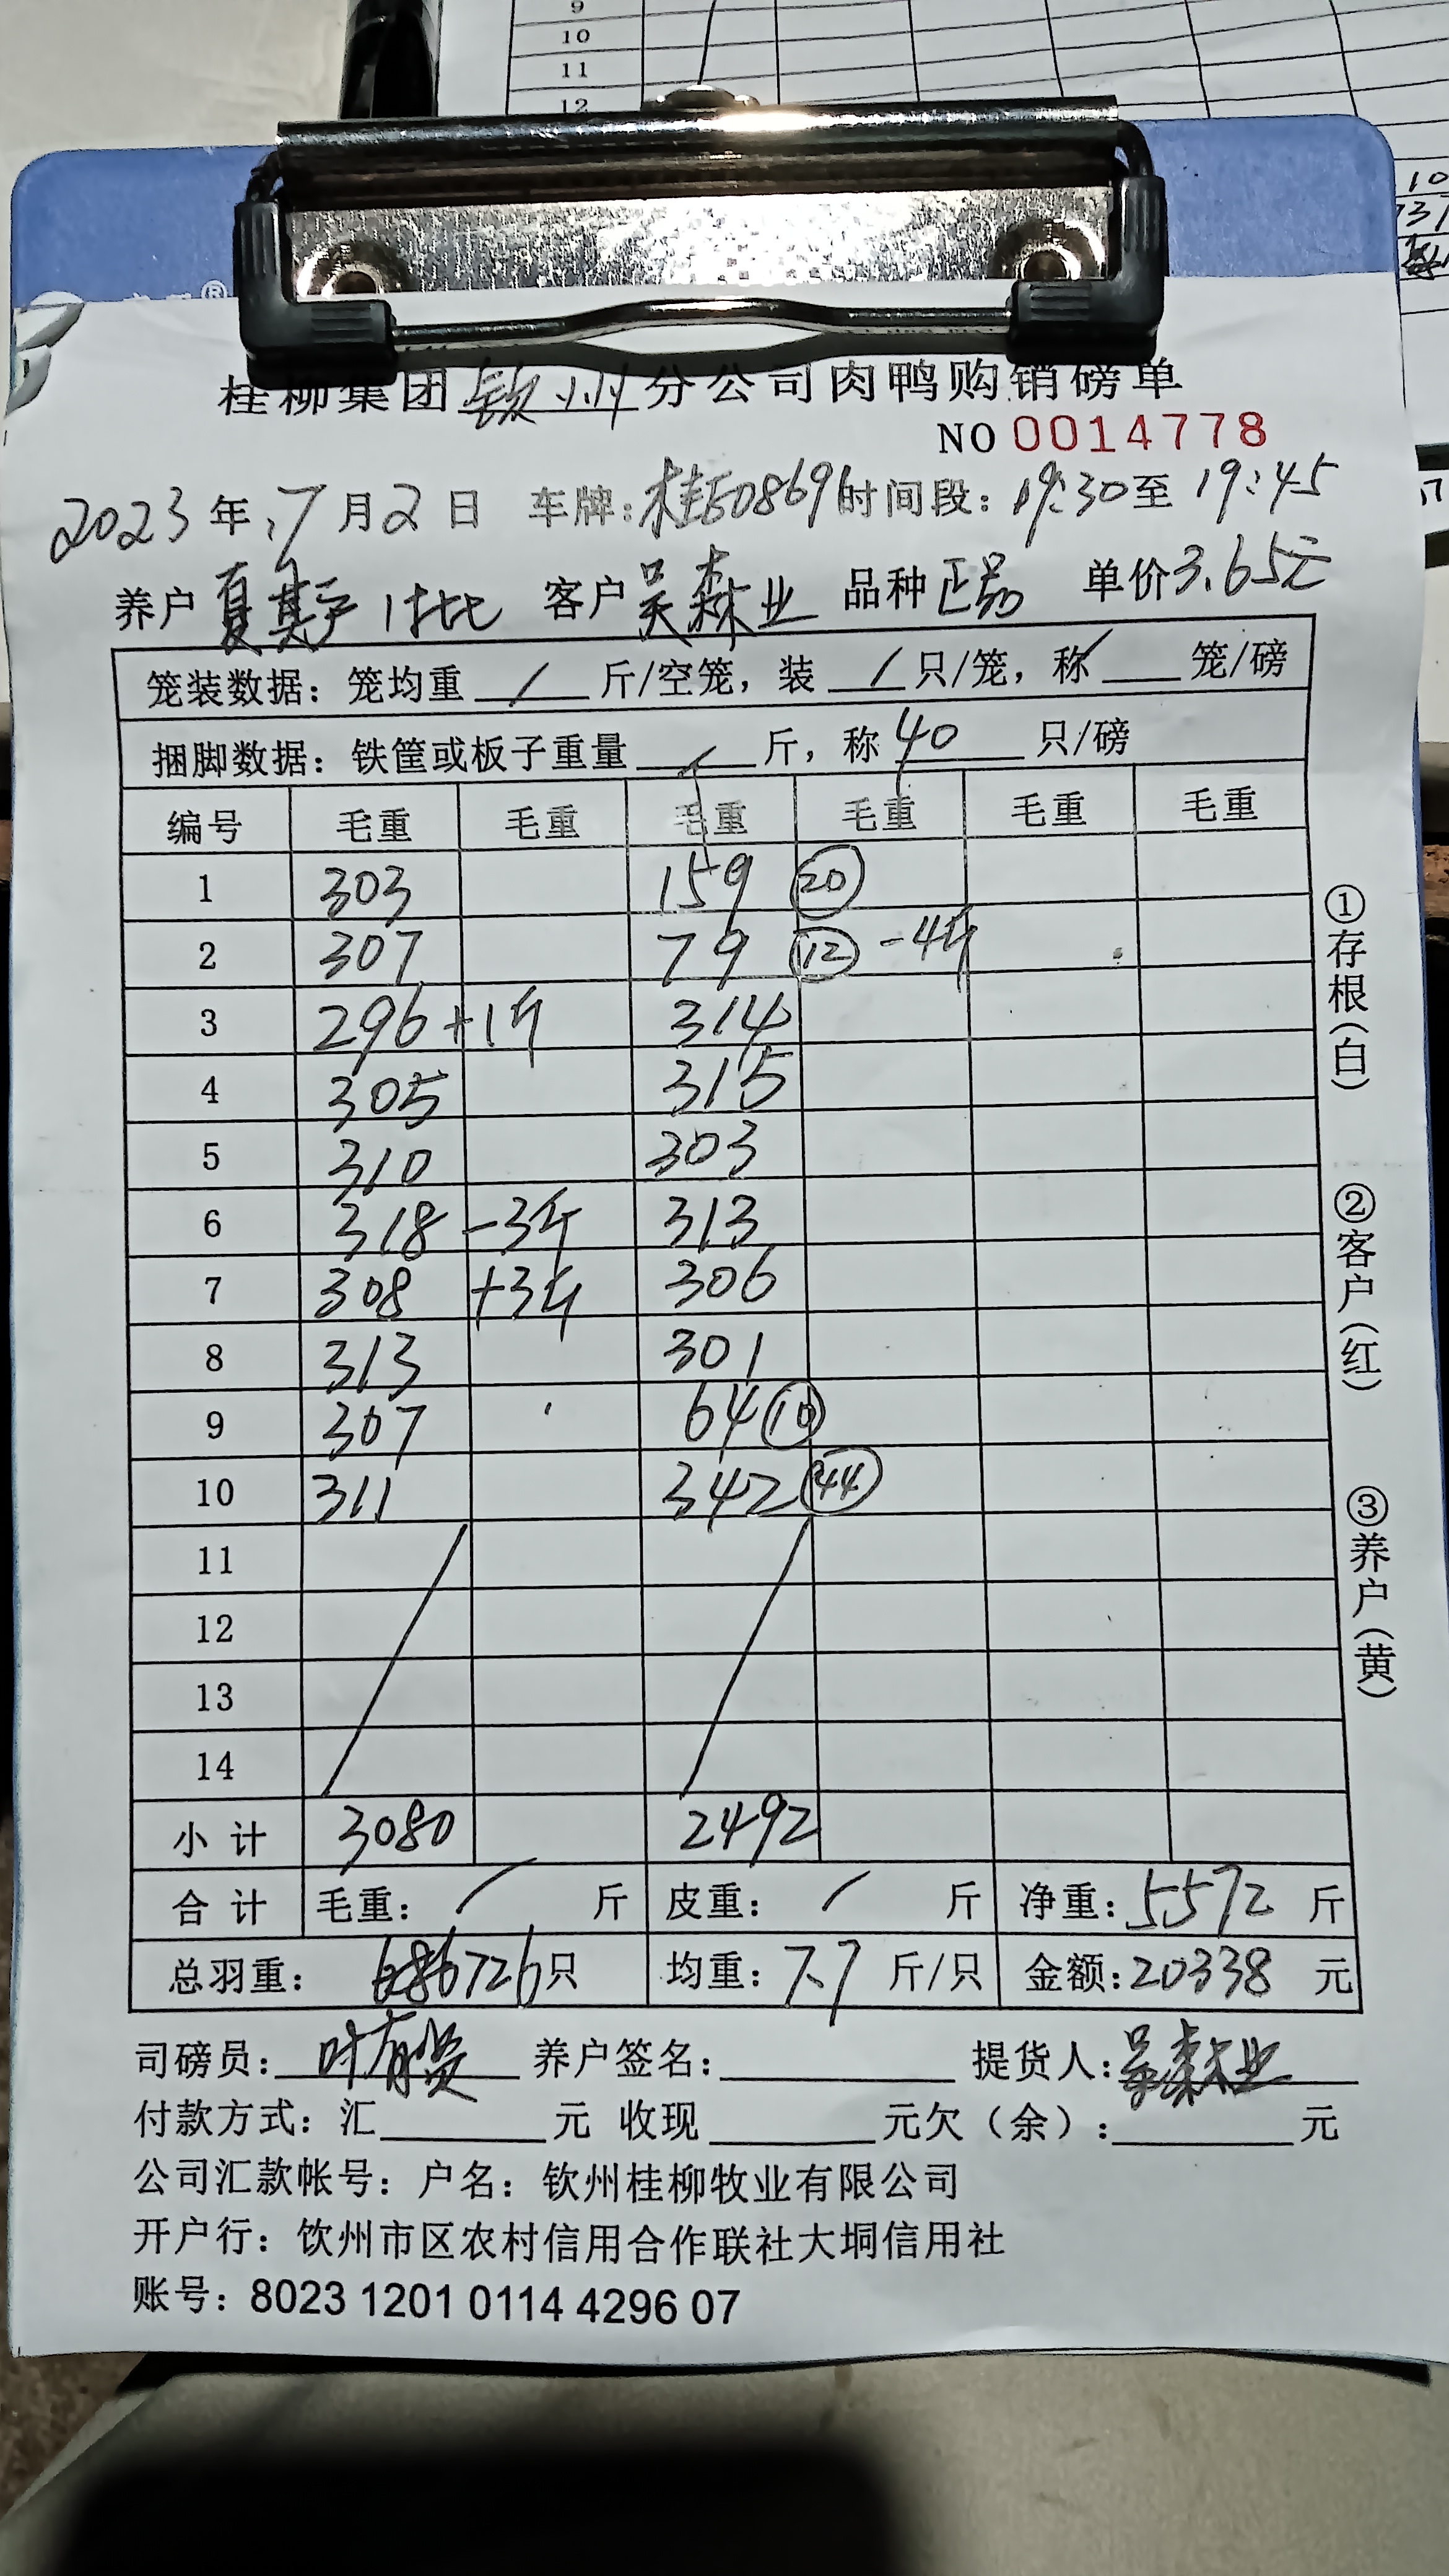 9
10
11
12
10
桂柳集团钦州分公司肉鸭购销磅单
NO 0014778
2023年7月2日 车牌:桂E08696时间段:19:30至19:45
养户 夏其 1批 客户吴森业 品种正品 单价3.65元
笼装数据:笼均重 / 斤/空笼,装 / 只/笼,称 / 笼/磅
捆脚数据:铁筐或板子重量 / 斤,称40只/磅
编号 毛重 毛重 毛重 毛重 毛重 毛重
1 303 159 ⑳
2 307 79 ⑫ -4斤
3 296 +1斤 314
4 305 315
5 310 303
6 318 -3斤 313
7 308 +3斤 306
8 313 301
9 307 64 ⑩
10 311 342 ㊹
11
12
13
14
小计 3080 2492
合计 毛重: / 斤 皮重: / 斤 净重:5572斤
总羽重: 726只 均重:7.7斤/只 金额:20338元
司磅员:叶有贤 养户签名: 提货人:吴森业
付款方式:汇 元 收现 元欠(余): 元
公司汇款帐号:户名:钦州桂柳牧业有限公司
开户行:钦州市区农村信用合作联社大垌信用社
账号:8023 1201 0114 4296 07
①存根(白)
②客户(红)
③养户(黄)